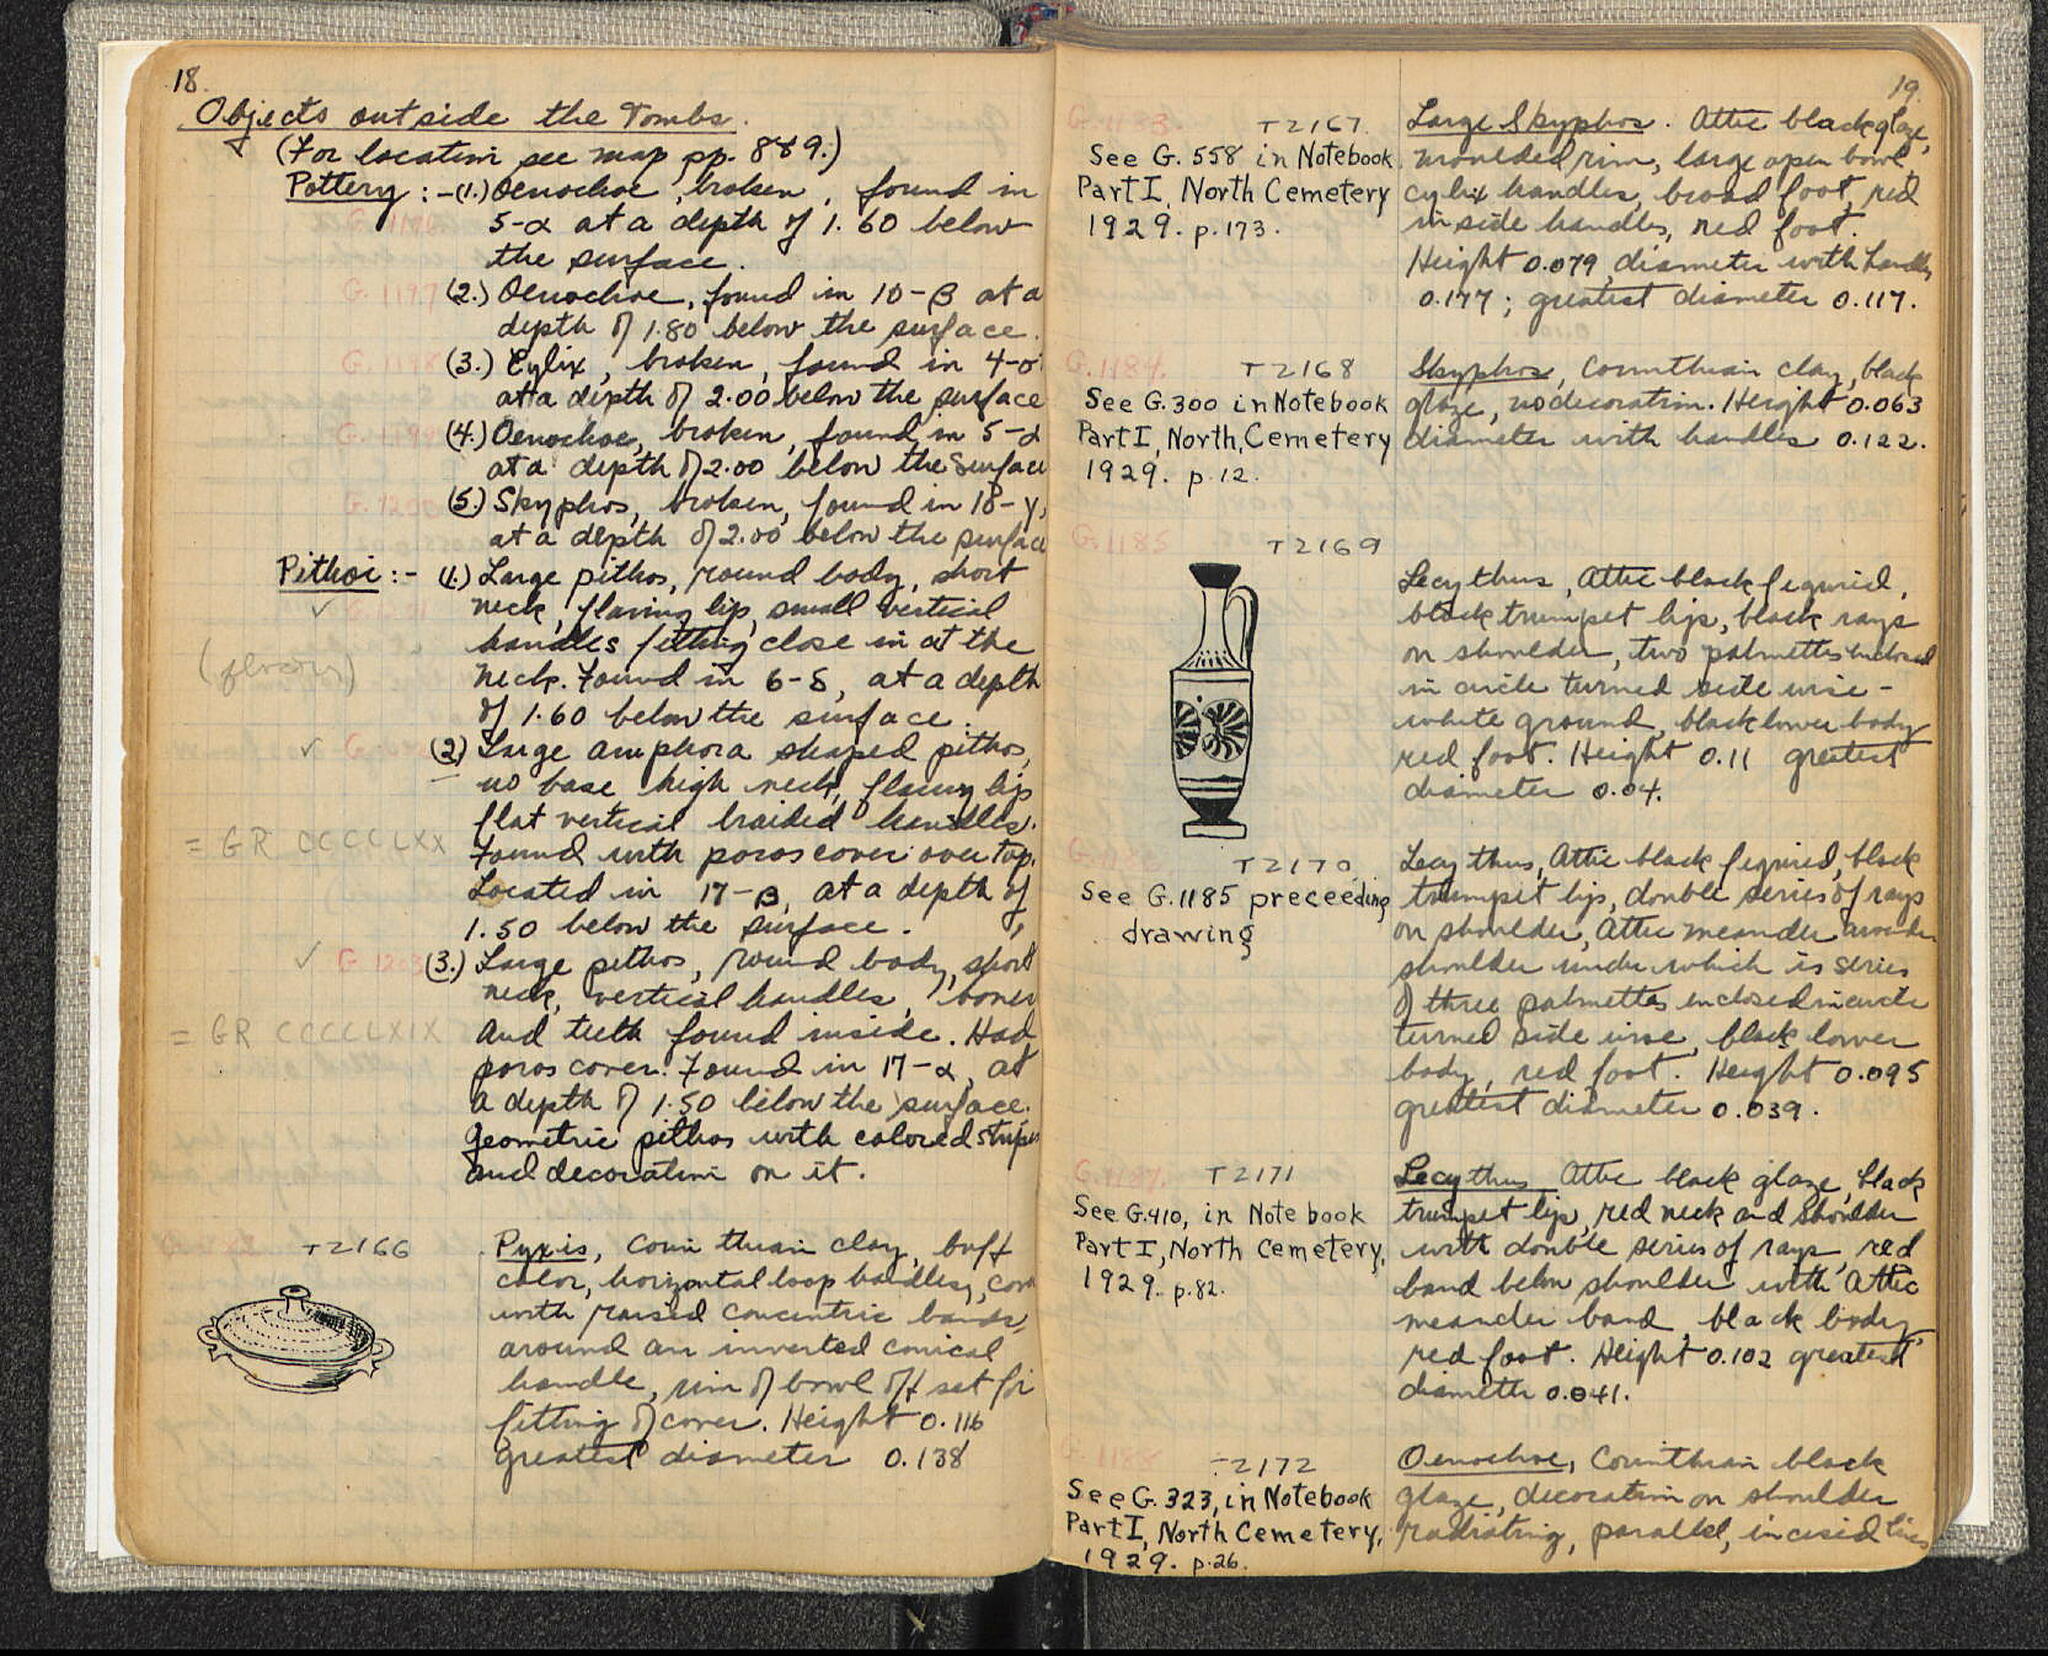 18.
Objects outside the Tombs.
(For location see map pp. 8&9.)
Pottery :- (1.) Oenochoe, broken, found in
5-α at a depth of 1.60 below
the surface.
G. 1197 (2.) Oenochoe, found in 10-β at a
depth of 1.80 below the surface.
G. 1198 (3.) Cylix, broken, found in 4-
at a depth of 2.00 below the surface
G. 1199 (4.) Oenochoe, broken, found in 5-α
at a depth of 2.00 below the surface
G. 1200 (5.) Skyphos, broken, found in 18-γ,
at a depth of 2.00 below the surface
Pithoi :- (1.) Large pithos, round body, short
✓ neck, flaring lip, small vertical
handles fitting close in at the
neck. Found in 6-δ, at a depth
of 1.60 below the surface.
✓ (2) Large amphora shaped pithos,
no base high neck, flaring lip
flat vertical braided handles.
= GR CCCCLXX Found with poros cover over top.
Located in 17-β, at a depth of
1.50 below the surface.
✓ G 1203 (3.) Large pithos, round body, short
neck, vertical handles, bones
= GR CCCCLXIX and teeth found inside. Had
poros cover. Found in 17-α, at
a depth of 1.50 below the surface.
Geometric pithos with colored stripes
and decoration on it.
T2166 Pyxis, Corinthian clay, buff
color, horizontal loop handles, cover
with raised concentric bands,
around an inverted conical
handle, rim of bowl off set for
fitting of cover. Height 0.116
greatest diameter 0.138
19.
G. 1183. T2167. Large Skyphos. Attic black glaze,
See G. 558 in Notebook moulded rim, large open bowl,
Part I, North Cemetery cylix handles, broad foot, red
1929. p. 173. inside handles, red foot.
Height 0.079, diameter with handles
0.177; greatest diameter 0.117.
G. 1184. T2168 Skyphos, Corinthian clay, black
See G. 300 in Notebook glaze, no decoration. Height 0.063
Part I, North, Cemetery diameter with handles 0.122.
1929. p. 12.
G. 1185 T2169
Lecythus, Attic black figured,
black trumpet lip, black rays
on shoulder, two palmettes enclosed
in circle turned side wise -
white ground, black lower body
red foot. Height 0.11 greatest
diameter 0.04.
T2170. Lecythus, Attic black figured, black
See G. 1185 preceeding trumpet lip, double series of rays
drawing on shoulder, Attic meander around
shoulder under which is series
of three palmettes enclosed in circle
turned side wise, black lower
body, red foot. Height 0.095
greatest diameter 0.039.
G. 1187. T2171 Lecythus Attic black glaze, black
See G. 410, in Note book trumpet lip, red neck and shoulder
Part I, North Cemetery, with double series of rays, red
1929. p. 82. band below shoulder with Attic
meander band, black body,
red foot. Height 0.102 greatest
diameter 0.041.
G. 1188 T2172 Oenochoe, Corinthian black
See G. 323, in Notebook glaze, decoration on shoulder
Part I, North Cemetery, radiating, parallel, incised lines
1929. p. 26.